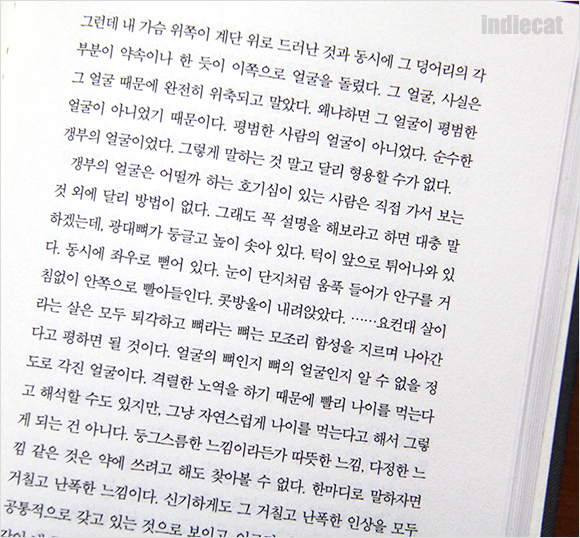 indiecat
그런데 내 가슴 위쪽이 계단 위로 드러난 것과 동시에 그 덩어리의 각
부분이 약속이나 한 듯이 이쪽으로 얼굴을 돌렸다. 그 얼굴, 사실은
그 얼굴 때문에 완전히 위축되고 말았다. 왜냐하면 그 얼굴이 평범한
얼굴이 아니었기 때문이다. 평범한 사람의 얼굴이 아니었다. 순수한
갱부의 얼굴이었다. 그렇게 말하는 것 말고 달리 형용할 수가 없다.
갱부의 얼굴은 어떨까 하는 호기심이 있는 사람은 직접 가서 보는
것 외에 달리 방법이 없다. 그래도 꼭 설명을 해보라고 하면 대충 말
하겠는데, 광대뼈가 둥글고 높이 솟아 있다. 턱이 앞으로 튀어나와 있
다. 동시에 좌우로 뻗어 있다. 눈이 단지처럼 움푹 들어가 안구를 거
침없이 안쪽으로 빨아들인다. 콧방울이 내려앉았다. ……요컨대 살이
라는 살은 모두 퇴각하고 뼈라는 뼈는 모조리 함성을 지르며 나아간
다고 평하면 될 것이다. 얼굴의 뼈인지 뼈의 얼굴인지 알 수 없을 정
도로 각진 얼굴이다. 격렬한 노역을 하기 때문에 빨리 나이를 먹는다
고 해석할 수도 있지만, 그냥 자연스럽게 나이를 먹는다고 해서 그렇
게 되는 건 아니다. 둥그스름한 느낌이라든가 따뜻한 느낌, 다정한 느
낌 같은 것은 약에 쓰려고 해도 찾아볼 수 없다. 한마디로 말하자면
거칠고 난폭한 느낌이다. 신기하게도 그 거칠고 난폭한 인상을 모두
공통적으로 갖고 있는 것으로 보이고